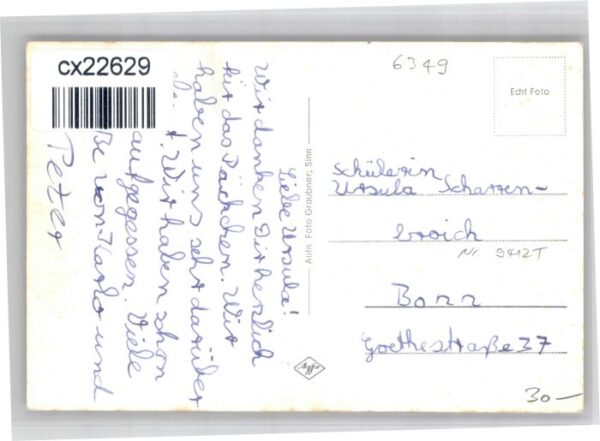 cx22629
Liebe Ursula!
Wir danken Dir herzlich
für das Päckchen. Wir
haben uns sehr darüber
t. Wir haben schon
aufgegessen. Viele
ße von Karlo und
Peter
Aufn. Foto Graubner, Sinn
6349
Echt Foto
Schülerin
Ursula Scharren-
broich
Nr. 9412T
Bonn
Goethestraße 27
Agfa
30-